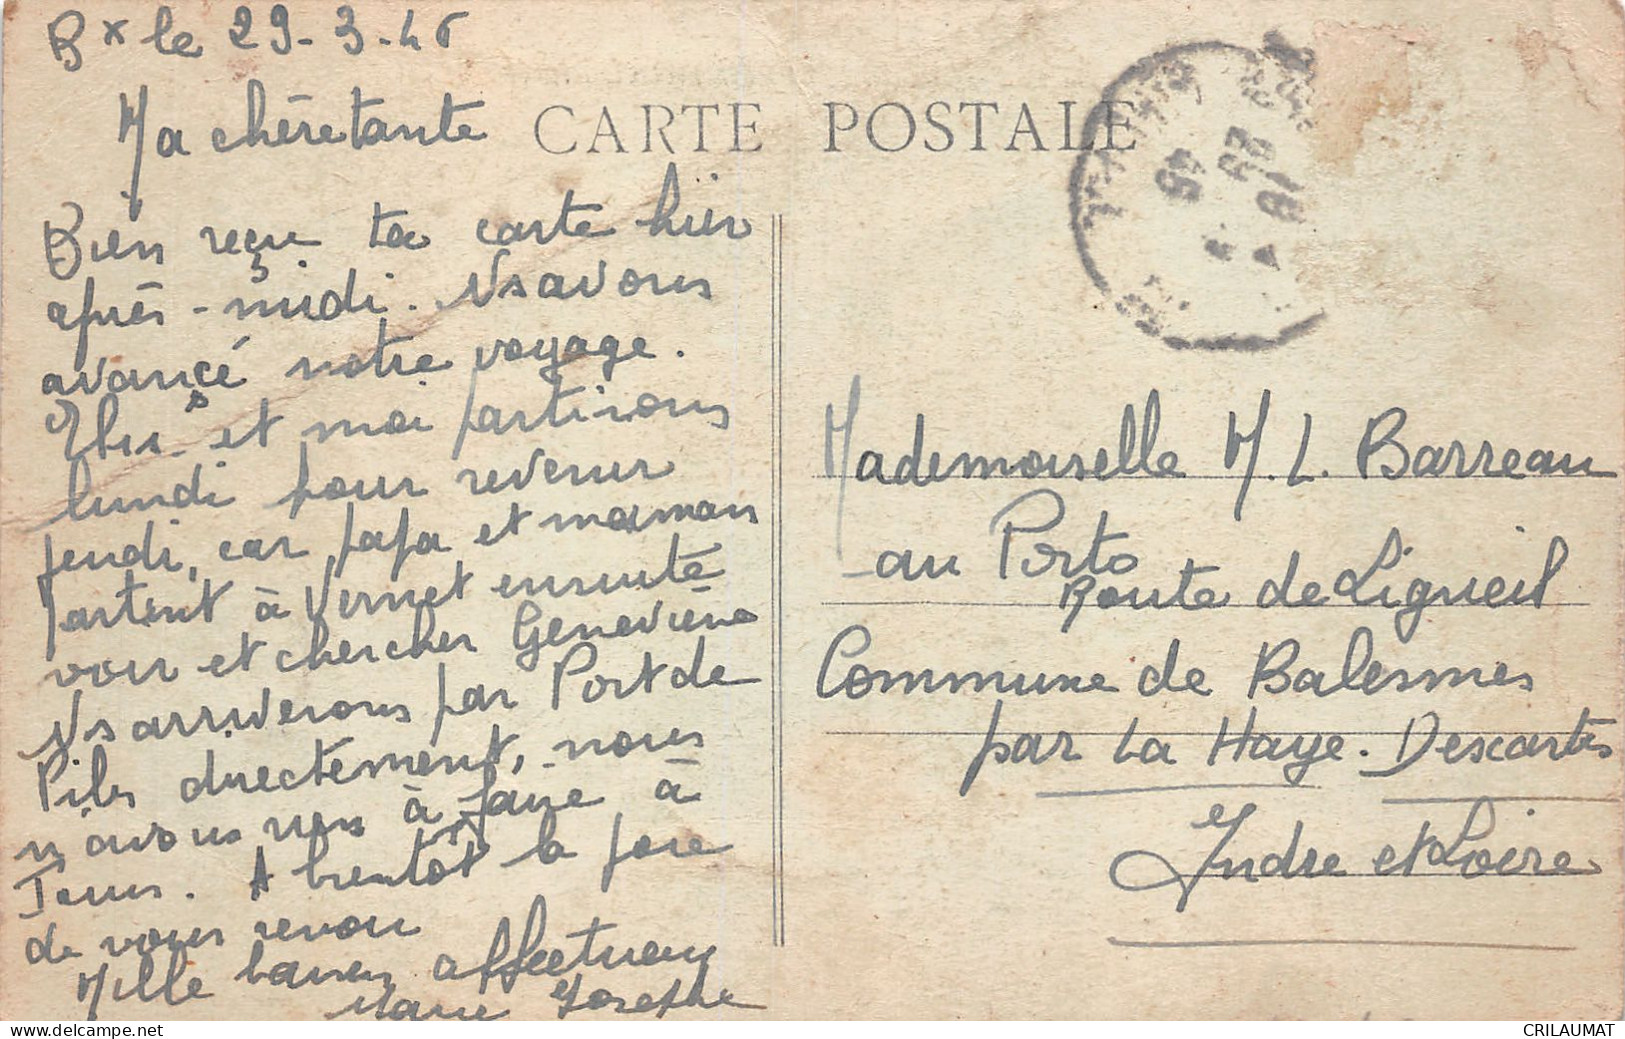 Bx le 29-3-46
Ma chère tante
CARTE POSTALE
Bien reçu ta carte hier
après-midi. Ns avons
avancé notre voyage.
et moi partirons
lundi pour revenir
jeudi, car papa et maman
partent à Vernet ensuite
voir et chercher Geneviève
Ns arriverons par Port de
Piles directement, nous
n'avons rien à faire à
Tours. A bientôt la joie
de vous revoir
Mille baisers affectueux
Marie Josephe
Mademoiselle M. L. Barreau
au Porto
Route de Ligueil
Commune de Balesmes
par La Haye-Descartes
Indre et Loire
CRILAUMAT